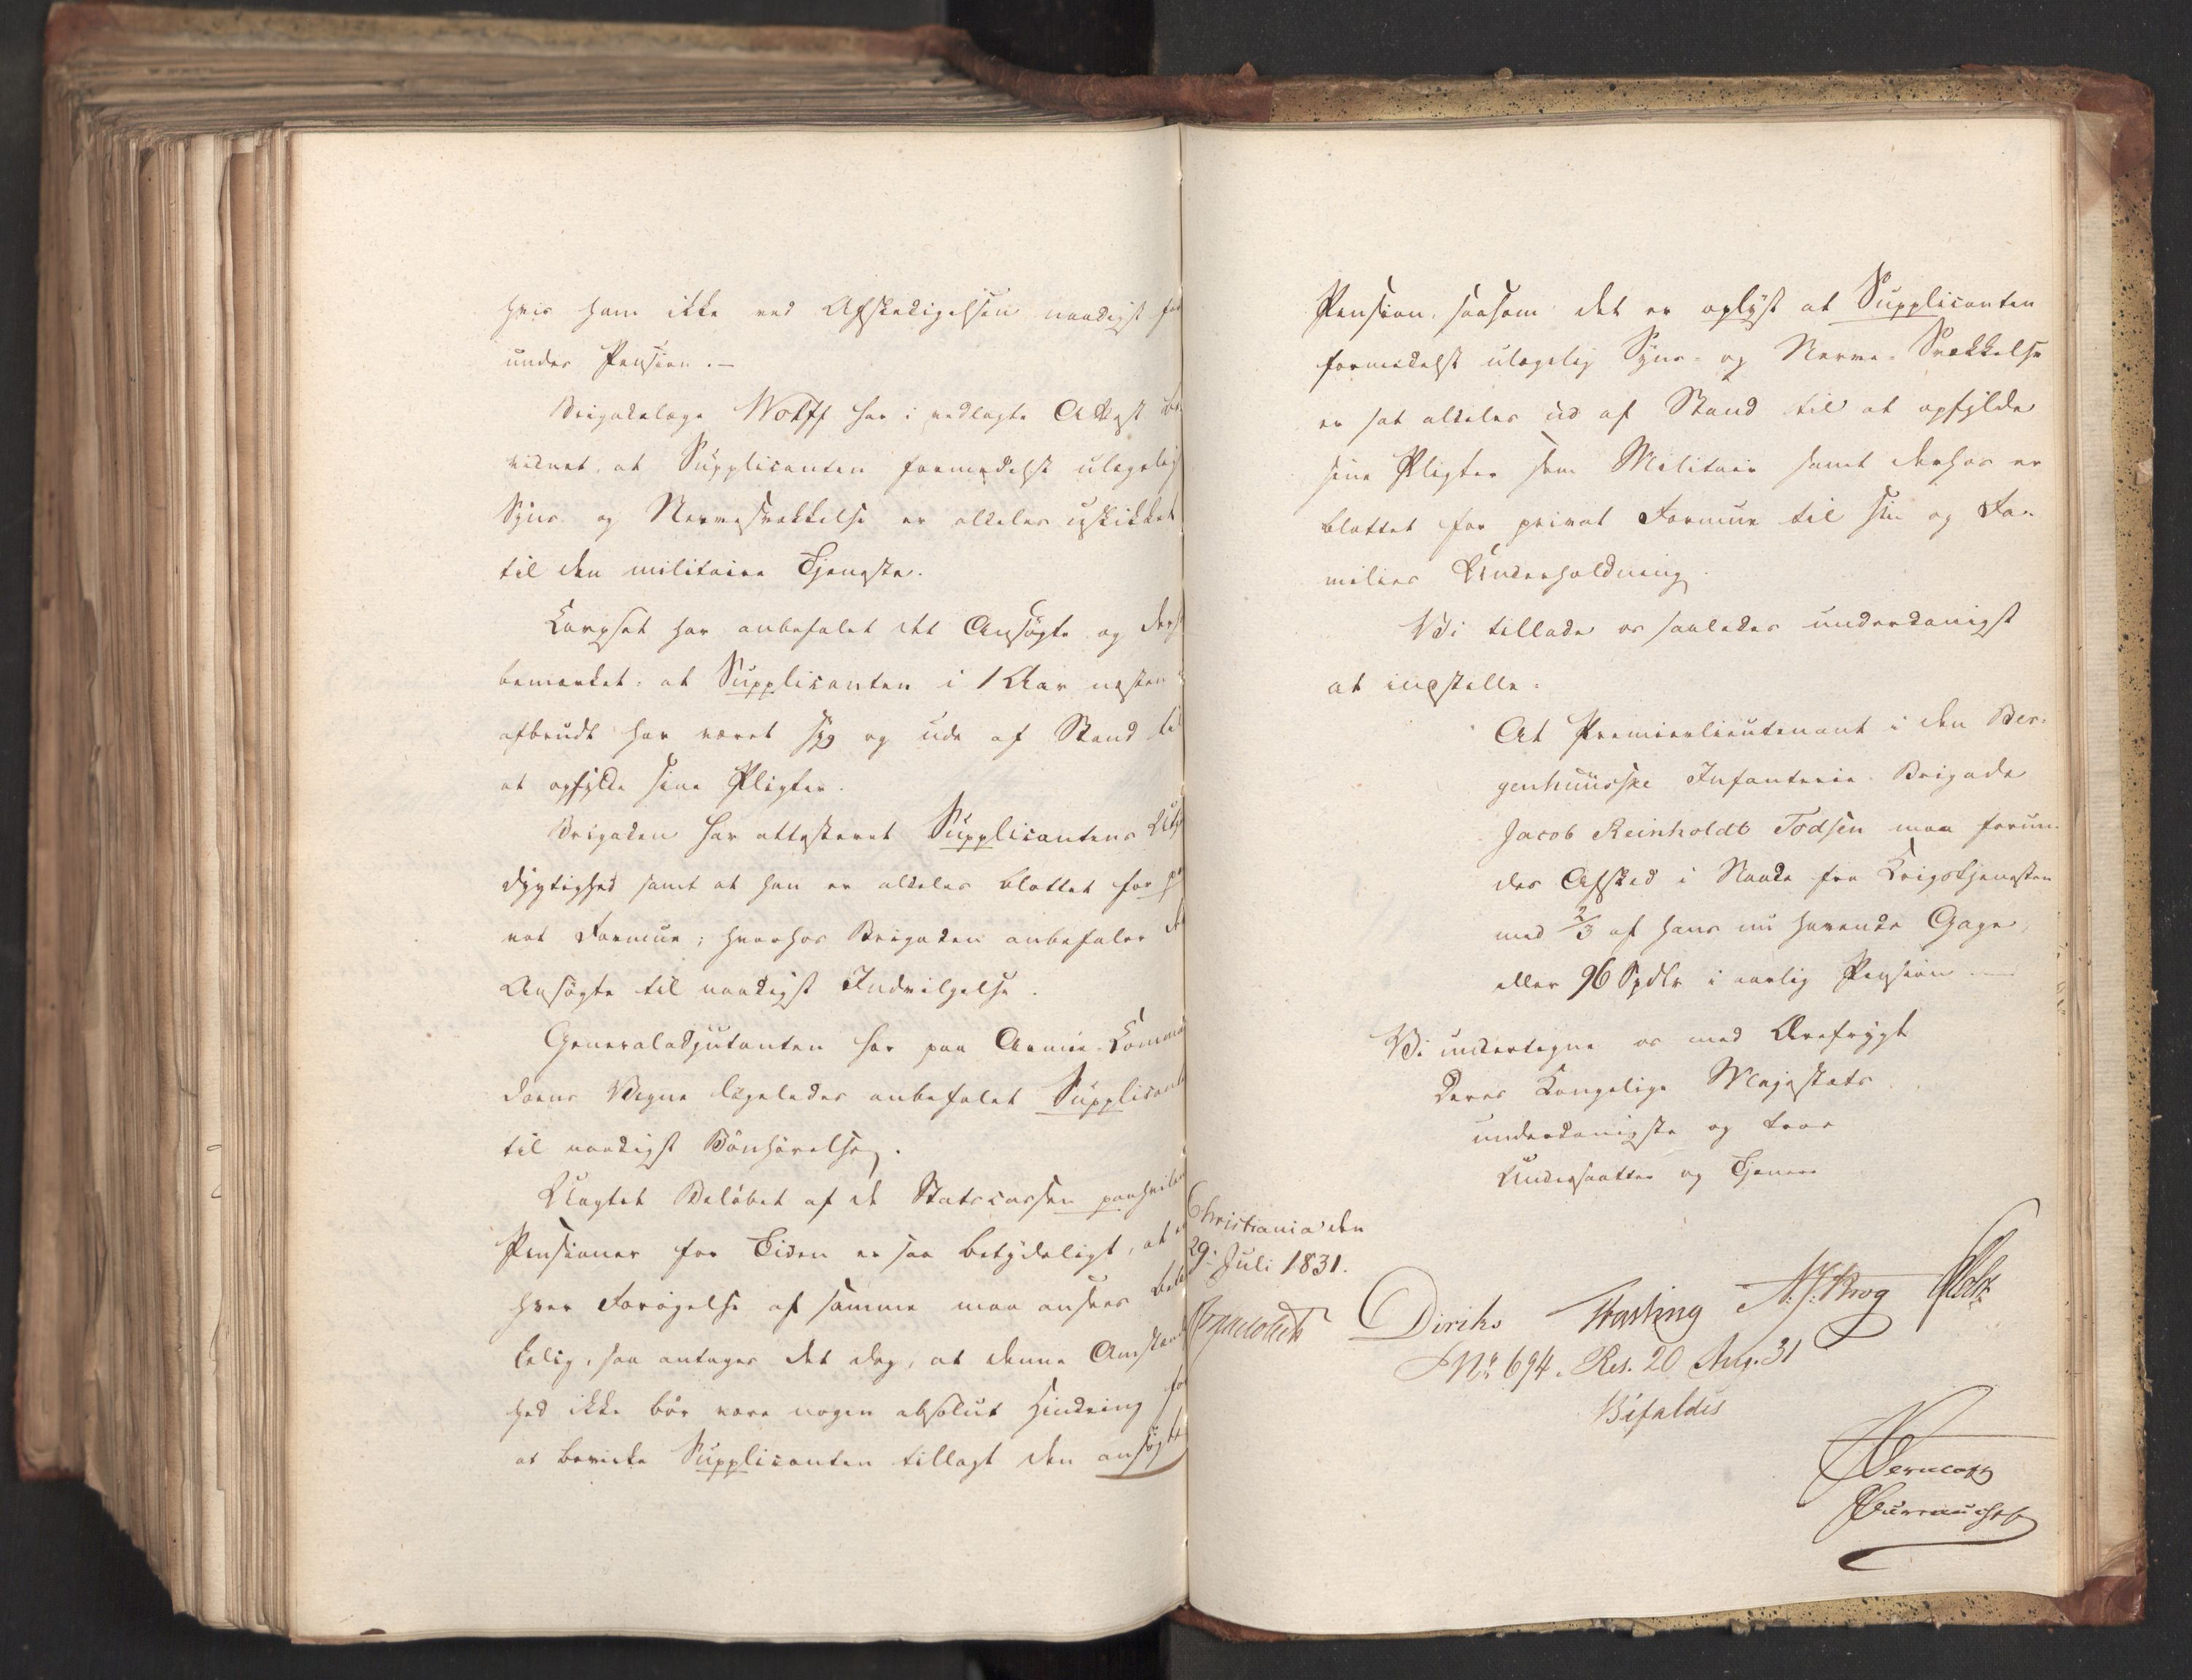 hvis ham ikke ved Afskedigelsen naadigst for
undes Pension.—
Brigadelæge Wolff har i vedlagte Attest be
vidnet, at Supplicanten formedelst ulægelig
Syns og Nervesvækkelse er aldeles uskikket
til den militaire Tjeneste.
Corpset har anbefalet det Ansøgte og derh
bemærket: at Supplicanten i 1 Aar næsten
afbrudt har været syg og ude af Stand til
at opfylde sine Pligter.
Brigaden har attesteret Supplicantens Utje
dygtighed samt at han er aldeles blottet for pr
vat Formue; hvorhos Brigaden anbefaler det
Ansøgte til naadigst Indvilgelse.
Generaladjutanten har paa Armee-Comman
doens Vegne ligeledes anbefalet Supplicant
til naadigst Bønhørelse.
Uagtet Beløbet af de Statscassen paahvilen
Pensioner for Tiden er saa betydeligt, at e
hver Forøgelse af samme maa ansees bet
kelig, saa antages det dog, at denne Omstænd
hed ikke bør være nogen absolut Hindring for
at bevirke Supplicanten tillagt den ansøgte
Pension, saasom det er oplyst at Supplicanten
formedelst ulægelig Syns- og Nerve-Svækkelse
er sat aldeles ud af Stand til at opfylde
sine Pligter som Militair samt derhos er
blottet for privat Formue til sin og Fa-
milies Underholdning.
Vi tillade os saaledes underdanigst
at indstille:
At Premierlieutenant i den Ber-
genhuusske Infanterie-Brigade
Jacob Reinholdt Todsen maa forun-
des Afsked i Naade fra Krigstjenesten
med 2/3 af hans nu havende Gage,
eller 96 Spdlr i aarlig Pension.—
Vi undertegne os med Ærefrygt
Deres Kongelige Majestæts
underdanigste og troe
Undersaatter og Tjenere
Christiania den
29. Juli 1831.
Diriks Fasting Krog Holst
No 694. Res. 20 Aug. 31
Bifaldes